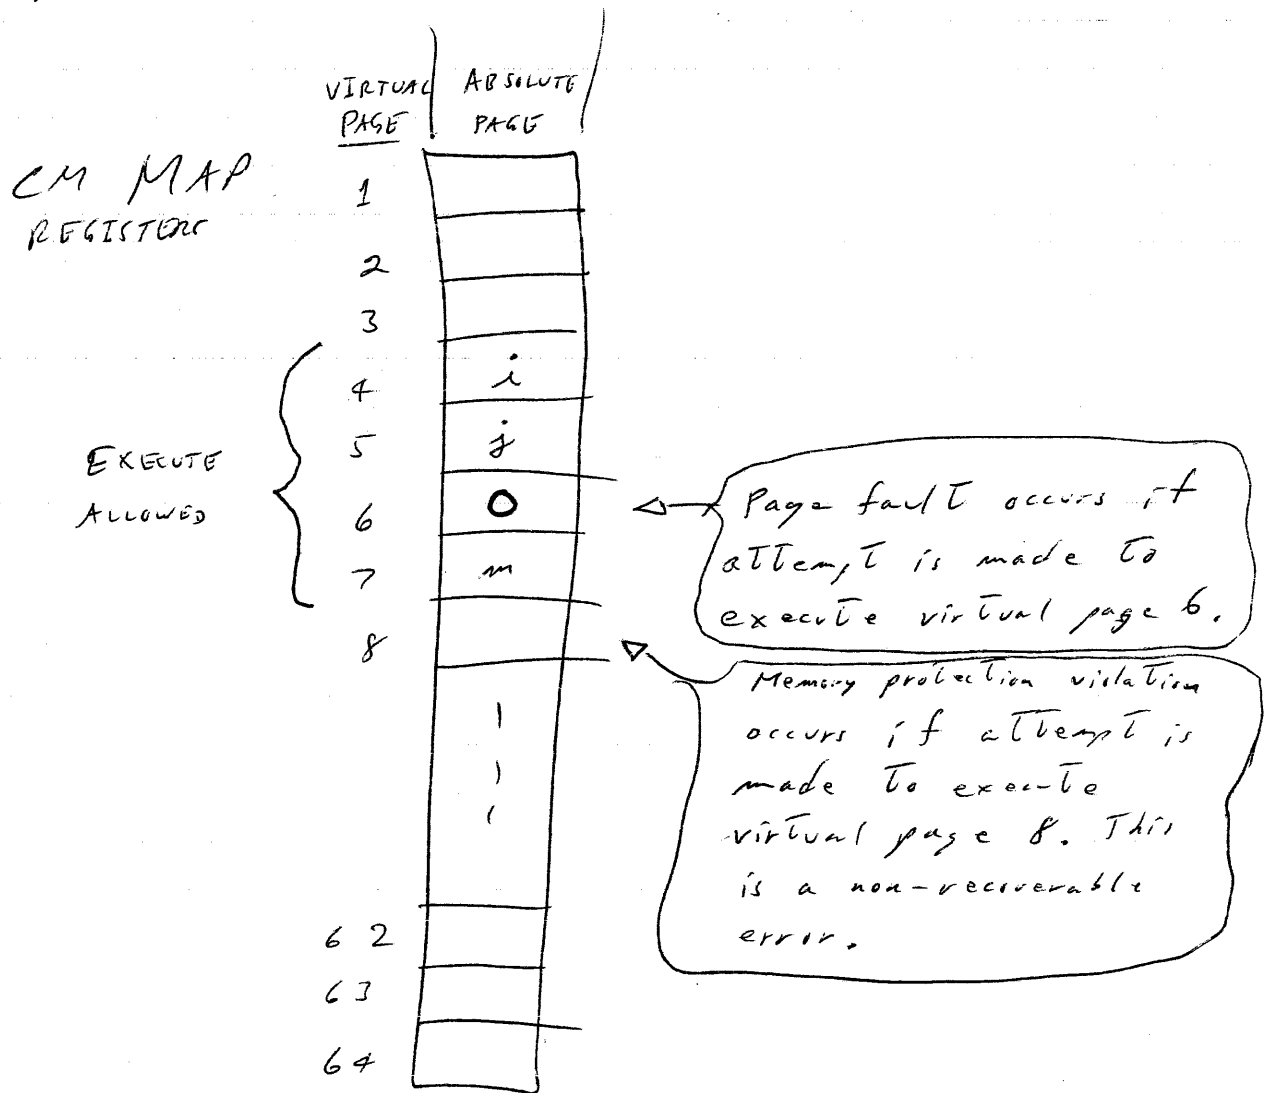 VIRTUAL PAGE
ABSOLUTE PAGE
CM MAP
REGISTERS
1
2
3
4 i
5 j
6 0
7 m
8
62
63
64
EXECUTE
ALLOWED
Page fault occurs if
attempt is made to
execute virtual page 6.
Memory protection violation
occurs if attempt is
made to execute
virtual page 8. This
is a non-recoverable
error.